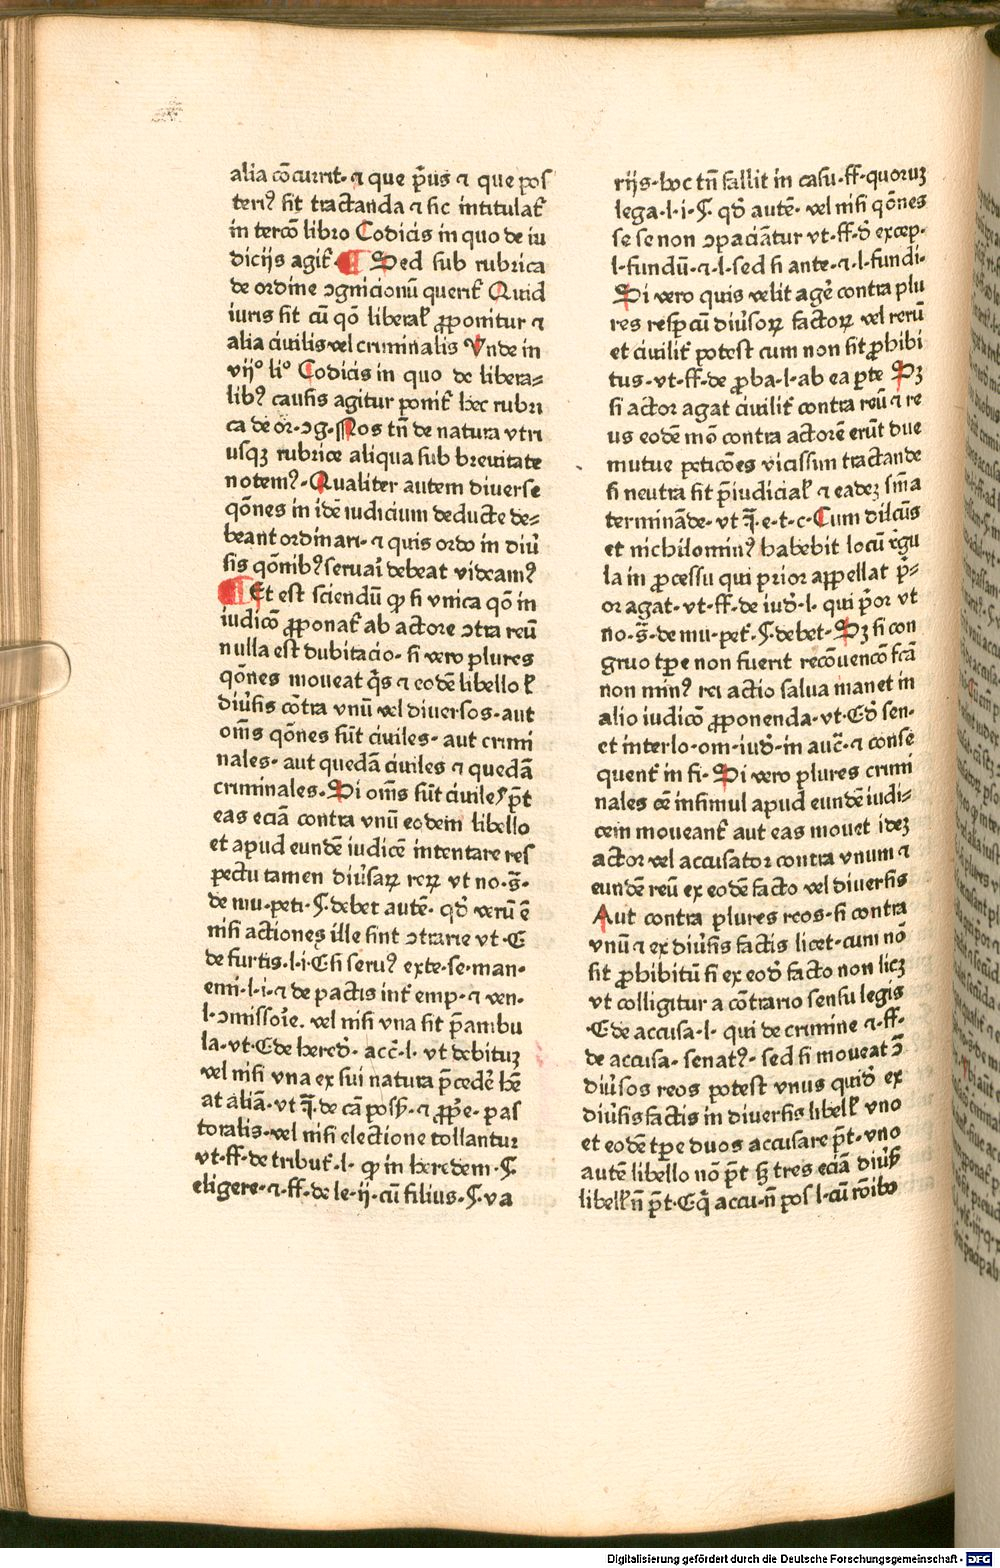 alia cōcurrit· ⁊ que p̄us ⁊ que pos
teriꝰ sit tractanda ⁊ sic intitulat᷑
in tercō libro Codicis in quo de iu
dicijs agit᷑· ¶ Sed sub rubrica
de ordine ↄgnicionū querit᷑ Quid
iuris sit cū qō liberal᷑ ꝓponitur ⁊
alia ciuilis vel criminalis Vnde in
vijº liº Codicis in quo de libera⸗
libꝰ causis agitur ponit᷑ hec rubri
ca de or·ↄg· Nos tn̄ de natura vtri
usqꝫ rubrice aliqua sub breuitate
notemꝰ· Qualiter autem diuerse
qōnes in idē iudicium deducte de⸗
beant ordinari· ⁊ quis ordo in diu᷑
sis qōnibꝰ seruai᷑ debeat videamꝰ
¶ Et est sciendū ꝙ si vnica qō in
iudicō ꝓponat᷑ ab actore ↄtra reū
nulla est dubitacio· si vero plures
qōnes moueat q̄s ⁊ eodē libello l᷑
diu᷑sis cōtra vnū vel diuersos· aut
om̄s qōnes sūt ciuiles· aut crimi
nales· aut quedā ciuiles ⁊ quedā
criminales· Si om̄s sūt ciuiles p̄t
eas eciā contra vnū eodem libello
et apud eundē iudicē intentare res
pectu tamen diu᷑saꝝ reꝝ vt no·s̄·
de mu·peti·§·debet autē· qd᷑ verū ē
nisi actiones ille sint ↄtrarie vt·C
de furtis·l·i·C si seruꝰ exte·se·man·
emi·l·i·⁊ de pactis int᷑ emp·⁊ ven·
l·ↄmissorie· vel nisi vna sit p̄ambu
la·vt·C de hered᷑· acc̄·l· vt debituꝫ
vel nisi vna ex sui natura p̄cedē hē
at aliā·vt q̄·de cā poss᷑·⁊ ꝓp̄e·pas
toralis·vel nisi electione tollantur
vt·ff·de tribut᷑·l· ꝙ in heredem·§
eligere·⁊·ff·de le·ij·cū filius·§·va
rijs·hoc tn̄ fallit in casu·ff·quoruꝫ
lega·l·i·§· qd᷑ autē· vel nisi qōnes
se se non ↄpaciātur vt·ff·d᷑ excep·
l·fundū·⁊·l·sed si ante·⁊·l·fundi·
Si vero quis velit age᷑ contra plu
res resp̄cū diu᷑soꝝ factoꝝ vel rerū
et ciuilit᷑ potest cum non sit ꝓhibi
tus·vt·ff·de ꝓba·l·ab ea parte Sꝫ
si actor agat ciuilit᷑ contra reū ⁊ re
us eodē mō contra actorē erūt due
mutue peticōes vicissim tractande
si neutra sit p̄iudicial᷑ ⁊ eadeꝫ sn̄ia
termināde·vt q̄·e·t·c·Cum dilcūs
et nichilominꝰ habebit locū r᷑gu
la in ꝓcessu qui prior appellat p̄⸗
or agat·vt·ff·de iud᷑·l·qui p̄or vt
no·s̄·de mu·pet᷑·§·debet·Sꝫ si con
gruo tp̄e non fuerit recōuencō fc̄ā
non minꝰ rei actio salua manet in
alio iudicō ꝓponenda·vt·C d᷑ sen·
et interlo·om·iud᷑·in auc̄·⁊ conse
quent᷑ in fi·Si vero plures crimi
nales cē insimul apud eundē iudi⸗
cem moueant᷑ aut eas mouet ideꝫ
actor vel accusator contra vnum ⁊
eundē reū ex eodē facto vel diuersis
Aut contra plures reos·si contra
vnū ⁊ ex diu᷑sis factis licet·cum nō
sit ꝓhibitū si ex eod᷑ facto non licꝫ
vt colligitur a cōtrario sensu legis
·C de accusa·l· qui de crimine ⁊·ff·
de accusa· senatꝰ· sed si moueat ↄ̄
diu᷑sos reos potest vnus quid᷑ ex
diu᷑sis factis in diuersis libell᷑ vno
et eodē tp̄e duos accusare p̄t·vno
autē libello nō p̄t sꝫ tres eciā diu᷑s᷑
libell᷑ n̄ p̄t·C q̄ accu·n̄ pos l·cū rōibꝰ